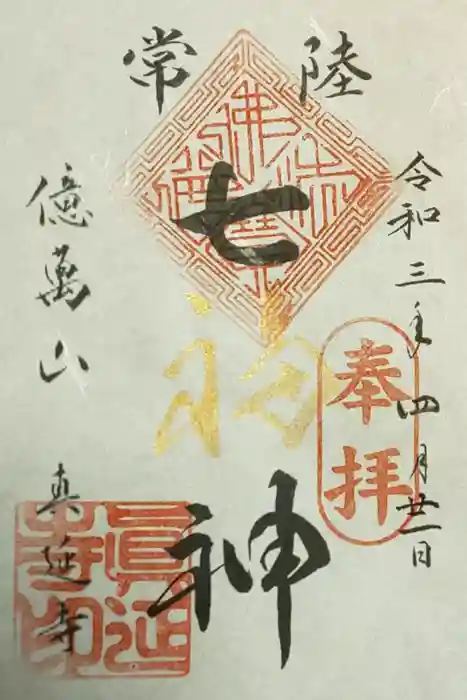 令和三年四月廿一日
奉拝
常陸
七福神
億萬山
真延寺
眞延
寺印